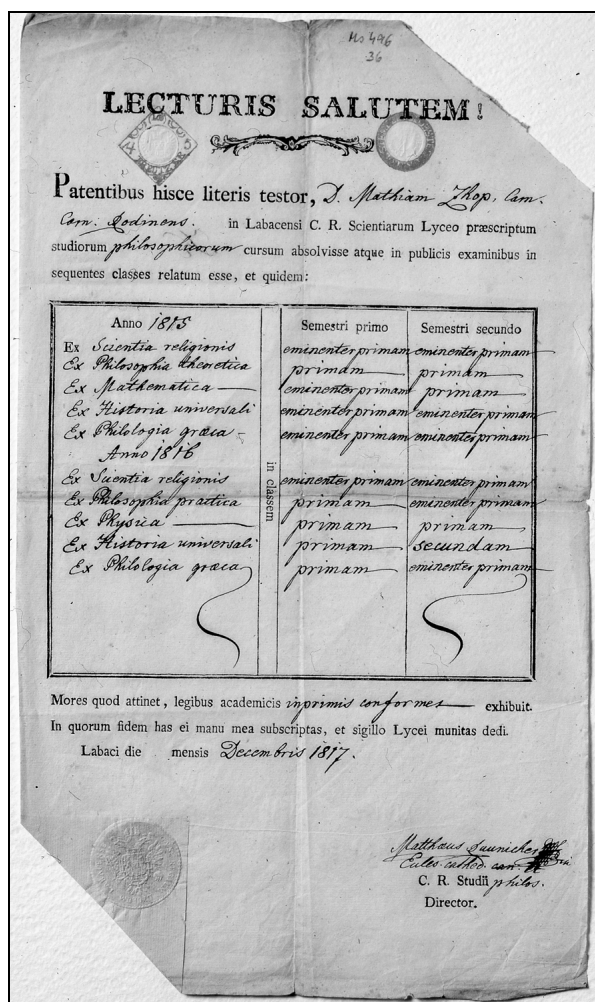 Ms 496
36
LECTURIS SALUTEM!
Patentibus hisce literis testor, D. Mathiam Zhop, Carn.
Carn. Rodinens. in Labacensi C. R. Scientiarum Lyceo præscriptum
studiorum philosophicorum cursum absolvisse atque in publicis examinibus in
sequentes classes relatum esse, et quidem:
Anno 1815 Semestri primo Semestri secundo
Ex Scientia religionis eminenter primam eminenter primam
Ex Philosophia theoretica primam primam
Ex Mathematica eminenter primam primam
Ex Historia universali eminenter primam eminenter primam
Ex Philologia græca eminenter primam eminenter primam
Anno 1816
in classem
Ex Scientia religionis eminenter primam eminenter primam
Ex Philosophia practica primam eminenter primam
Ex Physica primam primam
Ex Historia universali primam secundam
Ex Philologia græca primam eminenter primam
Mores quod attinet, legibus academicis inprimis conformes exhibuit.
In quorum fidem has ei manu mea subscriptas, et sigillo Lycei munitas dedi.
Labaci die mensis Decembris 1817.
Matthæus
Eccles. cathed. can.
C. R. Studii philos.
Director.